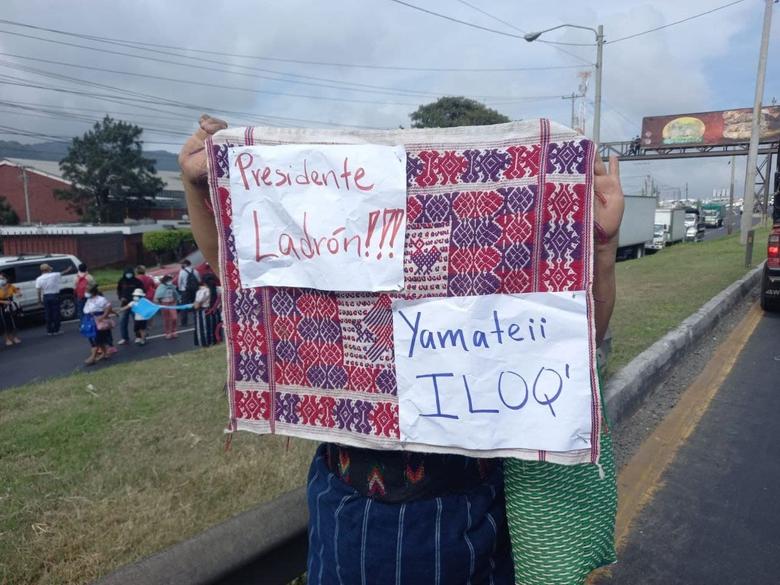 Presidente
Ladrón!!!
Yamateii
ILOQ'